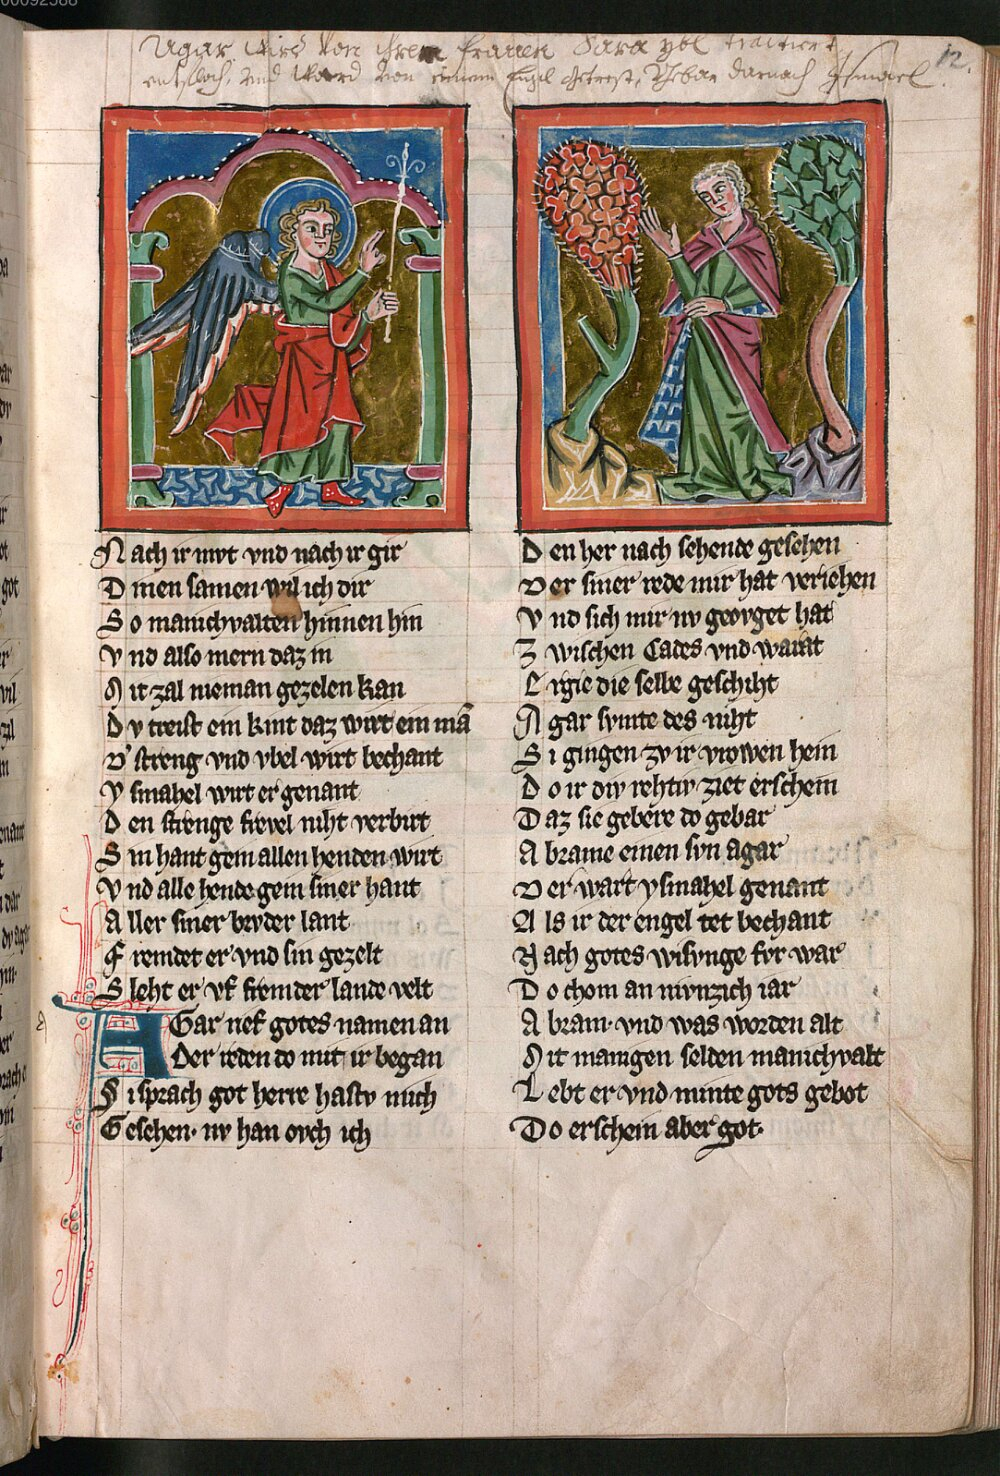 00092588
12.
Agar wirdt von ihrer frauen Sara ybl tractiert,
und ward von einem Engel getrest, Gebar darnach Ismael.
Nach ir mvt vnd nach ir gir
Dinen samen wil ich dir
So manichvalten hinnen hin
Vnd also mern daz in
Mit zal nieman gezelen kan
Dv treist ein kint daz wirt ein mā
D' streng vnd vbel wirt bechant
Ysmahel wirt er genant
Den strenge frevel niht verbirt
Sin hant gein allen henden wirt
Vnd alle hende gein siner hant
Aller siner brvder lant
Fremdet er vnd sin gezelt
Sleht er vf fremder lande velt
AGar rief gotes namen an
Der reden do mit ir began
Si sprach got herre hastv mich
Gesehen· nv han ovch ich
Den her nach sehende gesehen
Der siner rede mir hat veriehen
Vnd sich mir nv geovget hat
Zwischen Cades vnd warat
Ligie die selbe geschiht
Agar svmte des niht
Si gingen zv ir vrowen hein
Do ir div rehtiv ziet erschein
Daz sie gebere do gebar
Abrame einen svn agar
Der wart ysmahel genant
Als ir der engel tet bechant
Nach gotes wisvnge fvr war
Do chom an nivnzich iar
Abram· vnd was worden alt
Mit manigen selden manichvalt
Lebt er vnd minte gots gebot
Do erschein aber got·